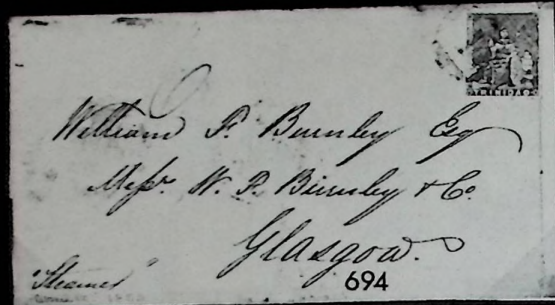 TRINIDAD
William P. Burnley Esq
Messrs. W. P. Burnley & Co.
Glasgow.
"Steamer"
694